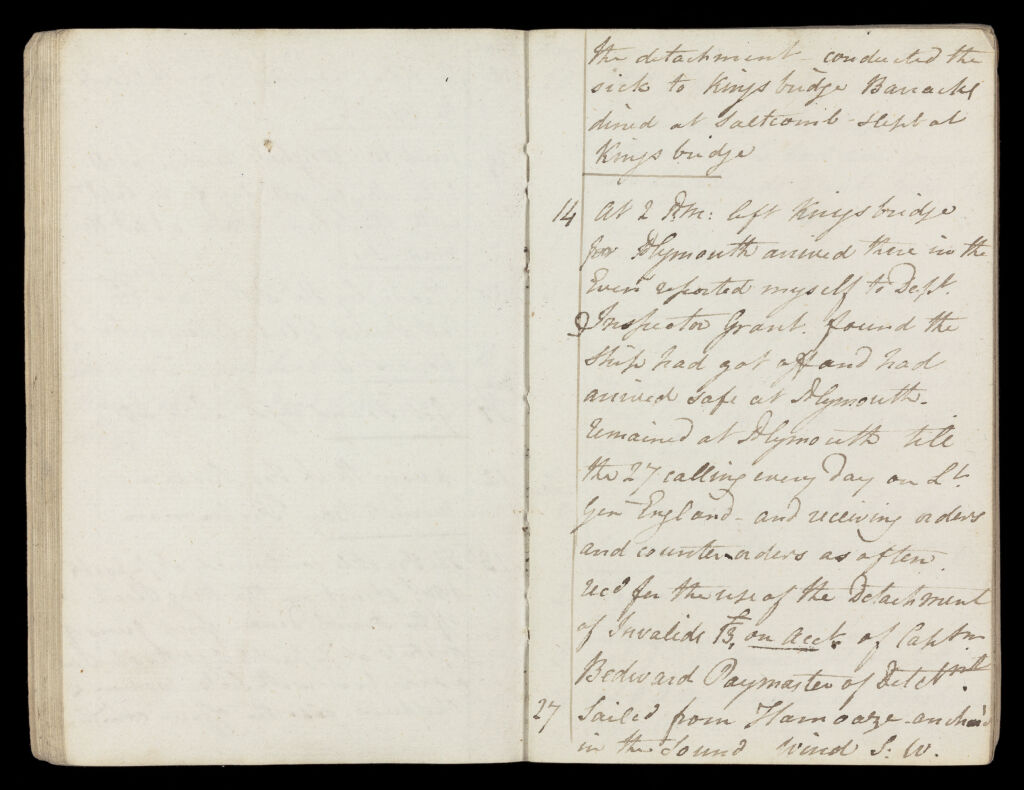 the detachment - conducted the
sick to Kingsbridge Barracks
dined at Saltcomb - slept at
Kingsbridge
14 At 2 P.M: left Kingsbridge
for Plymouth arrived there in the
Eveng reported myself to Dept.
Inspector Grant. found the
ship had got off and had
arrived safe at Plymouth -
remained at Plymouth till
the 27 calling every Day on Lt.
Genl England - and receiving orders
and counter orders as often.
recd for the use of the Detachment
of Invalids £13, on Acct. of Captn.
Paymaster of Detchmt.
27 Sailed from Hamoaze - anchor'd
in the Sound Wind S. W.